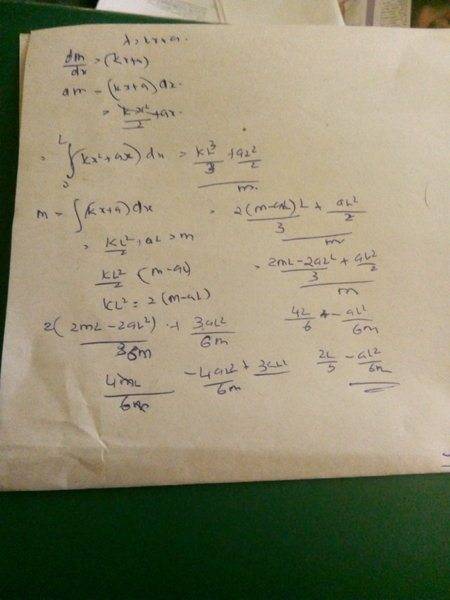 λ = kx+a.
dm/dx = (kx+a)
dm = (kx+a) dx.
= kx²/2 + ax.
= ∫₀ᴸ (kx²+ax) dx = (kL³/3 + aL²/2)/m
m = ∫(kx+a) dx
= kL²/2 + aL = m
kL²/2 (m-aL)
kL² = 2(m-aL)
= (2(m-aL)L/3 + aL²/2)/m
= ((2mL-2aL²)/3 + aL²/2)/m
2(2mL-2aL²)/36m + 3aL²/6m
4mL/6m - (4aL² + 3aL²)/6m
4L/6 - aL²/6m
2L/3 - aL²/6m